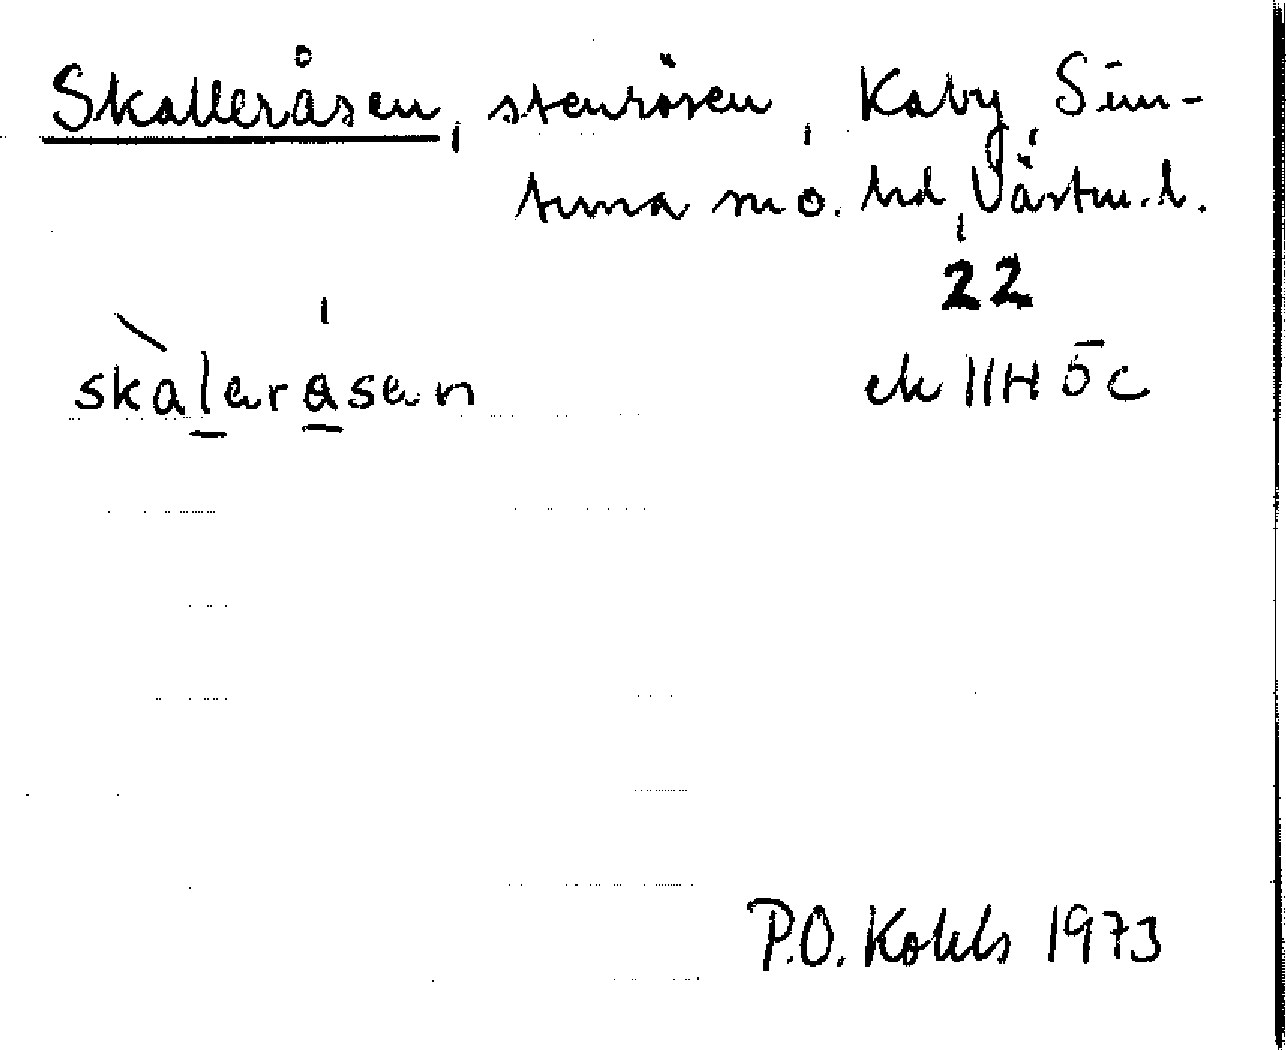 Skalleråsen, stenrösen, Kaby, Sim-
tuna sn o. hd, Västm. l.
22
skàleråsen
ek 11H 5c
P.O. Kohls 1973